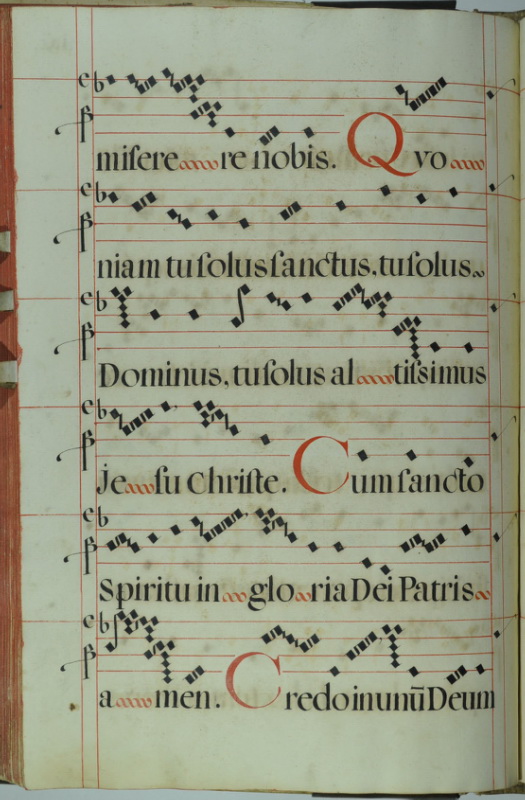 miſere re nobis. Quo
niam tu ſolus ſanctus, tu ſolus
Dominus, tu ſolus al tiſsimus
Je ſu Chriſte. Cum ſancto
Spiritu in glo ria Dei Patris
a men. Credo in unū Deum